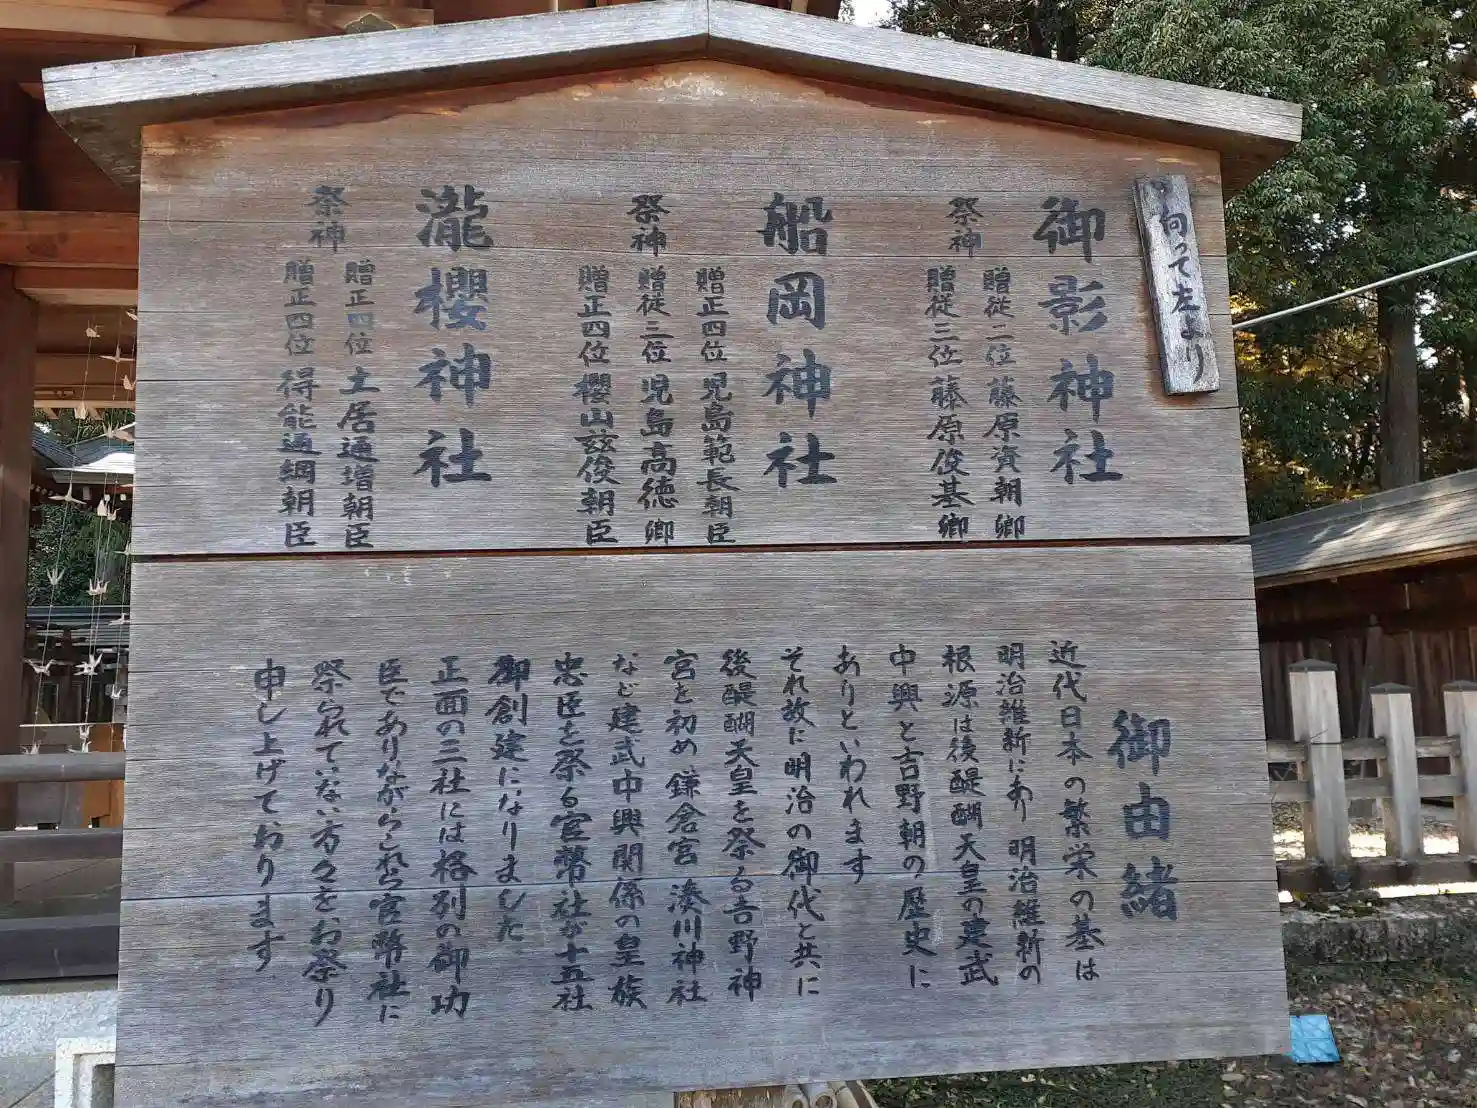 向って左より
御影神社
祭神
贈従二位 藤原資朝卿
贈従三位 藤原俊基卿
船岡神社
祭神
贈正四位 児島範長朝臣
贈従三位 児島高徳卿
贈正四位 櫻山玆俊朝臣
瀧櫻神社
祭神
贈正四位 土居通増朝臣
贈正四位 得能通綱朝臣
御由緒
近代日本の繁栄の基は
明治維新にあり 明治維新の
根源は後醍醐天皇の建武
中興と吉野朝の歴史に
ありといわれます
それ故に明治の御代と共に
後醍醐天皇を祭る吉野神
宮を初め 鎌倉宮 湊川神社
など建武中興関係の皇族
忠臣を祭る官幣社が十五社
御創建になりました
正面の三社には格別の御功
臣でありながらこれら官幣社に
祭られていない方々をお祭り
申し上げております